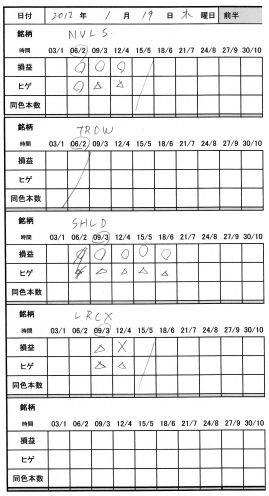 日付 2012 年 1 月 19 日 木 曜日 前半
銘柄 NVLS
時間 03/1 06/2 09/3 12/4 15/5 18/6 21/7 24/8 27/9 30/10
損益 ○ ○ ○
ヒゲ ○ △ △
同色本数
銘柄 TROW
時間 03/1 06/2 09/3 12/4 15/5 18/6 21/7 24/8 27/9 30/10
損益
ヒゲ
同色本数
銘柄 SHLD
時間 03/1 06/2 09/3 12/4 15/5 18/6 21/7 24/8 27/9 30/10
損益 ○ ○ ○ ○ ○
ヒゲ △ △ △ △
同色本数
銘柄 LRCX
時間 03/1 06/2 09/3 12/4 15/5 18/6 21/7 24/8 27/9 30/10
損益 △ X
ヒゲ △ △
同色本数
銘柄
時間 03/1 06/2 09/3 12/4 15/5 18/6 21/7 24/8 27/9 30/10
損益
ヒゲ
同色本数